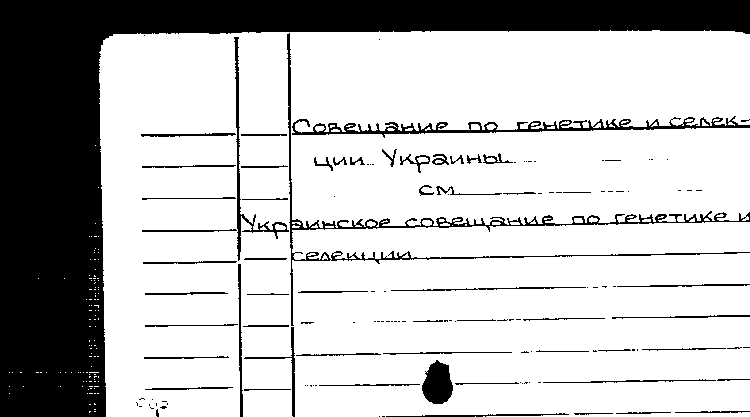 Совещание по генетике и селек-
ции Украины
см
Украинское совещание по генетике и
селекции.